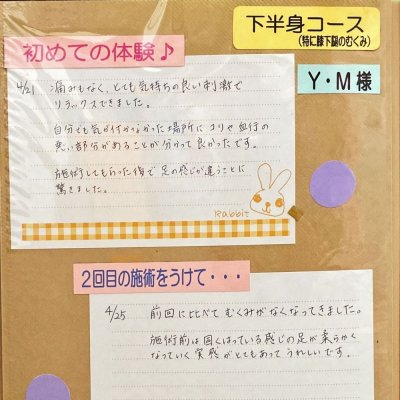 下半身コース
(特に膝下腿のむくみ)
初めての体験♪
Y・M様
4/21 痛みもなく、とても気持ちの良い刺激で
リラックスできました。
自分でも気が付かなかった場所にコリや血行の
悪い部分があることが分かって良かったです。
施術してもらった後で足の感じが違うことに
驚きました。
Rabbit
2回目の施術をうけて・・・
4/25 前回に比べてむくみがなくなってきました。
施術前は固くはっている感じの足が柔らかく
なっていく実感がとてもあってうれしいです。